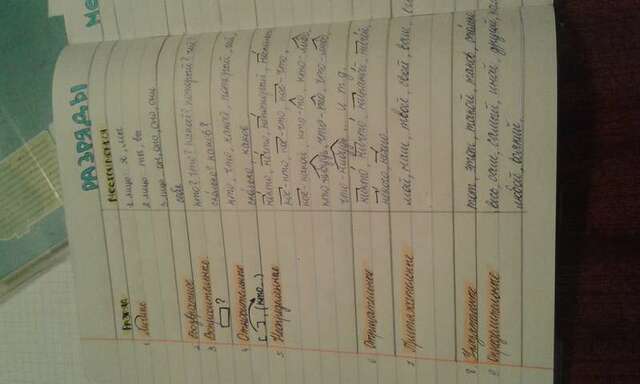 РАЗРЯДЫ
Местоимения
Разряд
1. Личные
1 лицо я, мы
2 лицо ты, вы
3 лицо он, она, оно, они
2. Возвратные
себя
3. Вопросительные
?
кто? что? какой? который? чей?
сколько? каков?
4. Относительные
[ ], (кто...)
кто, что, какой, который, чей,
сколько, каков
5. Неопределённые
некто, нечто, некоторый,
кое-кто, кое-что,
кто-то,
кто-нибудь, что-то,
что-нибудь и т.д.
6. Отрицательные
никто, ничто, никакой, ничей,
некого, нечего
7. Притяжательные
мой, наш, твой, свой, ваш,
8. Указательные
тот, этот, такой, таков,
9. Определительные
весь, сам, самый, иной, другой,
любой, всякий.
Ме